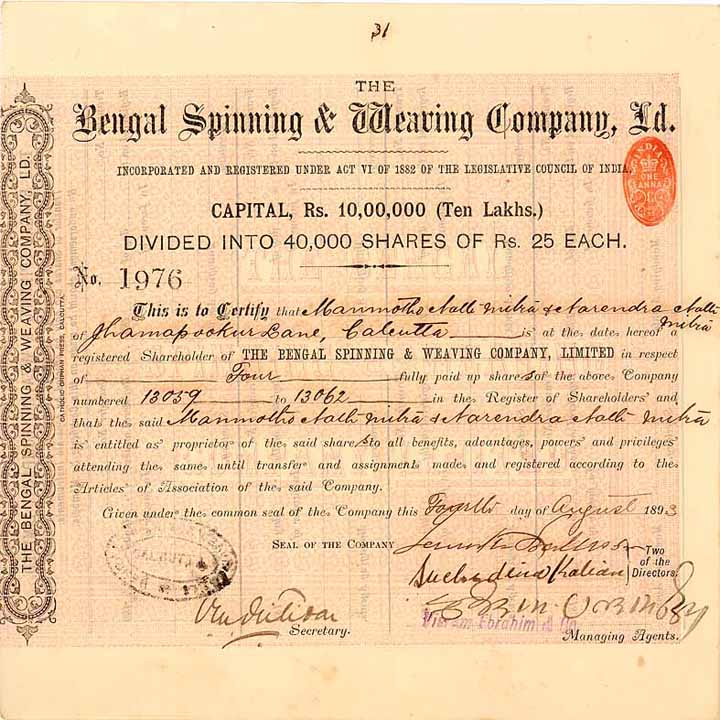 31
THE
Bengal Spinning & Weaving Company, Ld.
INCORPORATED AND REGISTERED UNDER ACT VI OF 1882 OF THE LEGISLATIVE COUNCIL OF INDIA.
INDIA
ONE
ANNA
CAPITAL, Rs. 10,00,000 (Ten Lakhs.)
DIVIDED INTO 40,000 SHARES OF Rs. 25 EACH.
No. 1976
This is to Certify that Manmotho Nath Mitra & Narendra Nath Mitra
of Jhamapookur Lane, Calcutta is at the date hereof a
registered Shareholder of THE BENGAL SPINNING & WEAVING COMPANY, LIMITED in respect
of Four fully paid up shares of the above Company
numbered 13059 to 13062 in the Register of Shareholders and
that the said Manmotho Nath Mitra & Narendra Nath Mitra
is entitled as proprietor of the said shares to all benefits, advantages, powers and privileges
attending the same until transfer and assignment made and registered according to the
Articles of Association of the said Company.
Given under the common seal of the Company this Fourth day of August 1893
SEAL OF THE COMPANY
Two of the Directors
Secretary.
Ebrahim & Co
Managing Agents.
THE BENGAL SPINNING & WEAVING COMPANY, LD.
CATHOLIC ORPHAN PRESS, CALCUTTA.